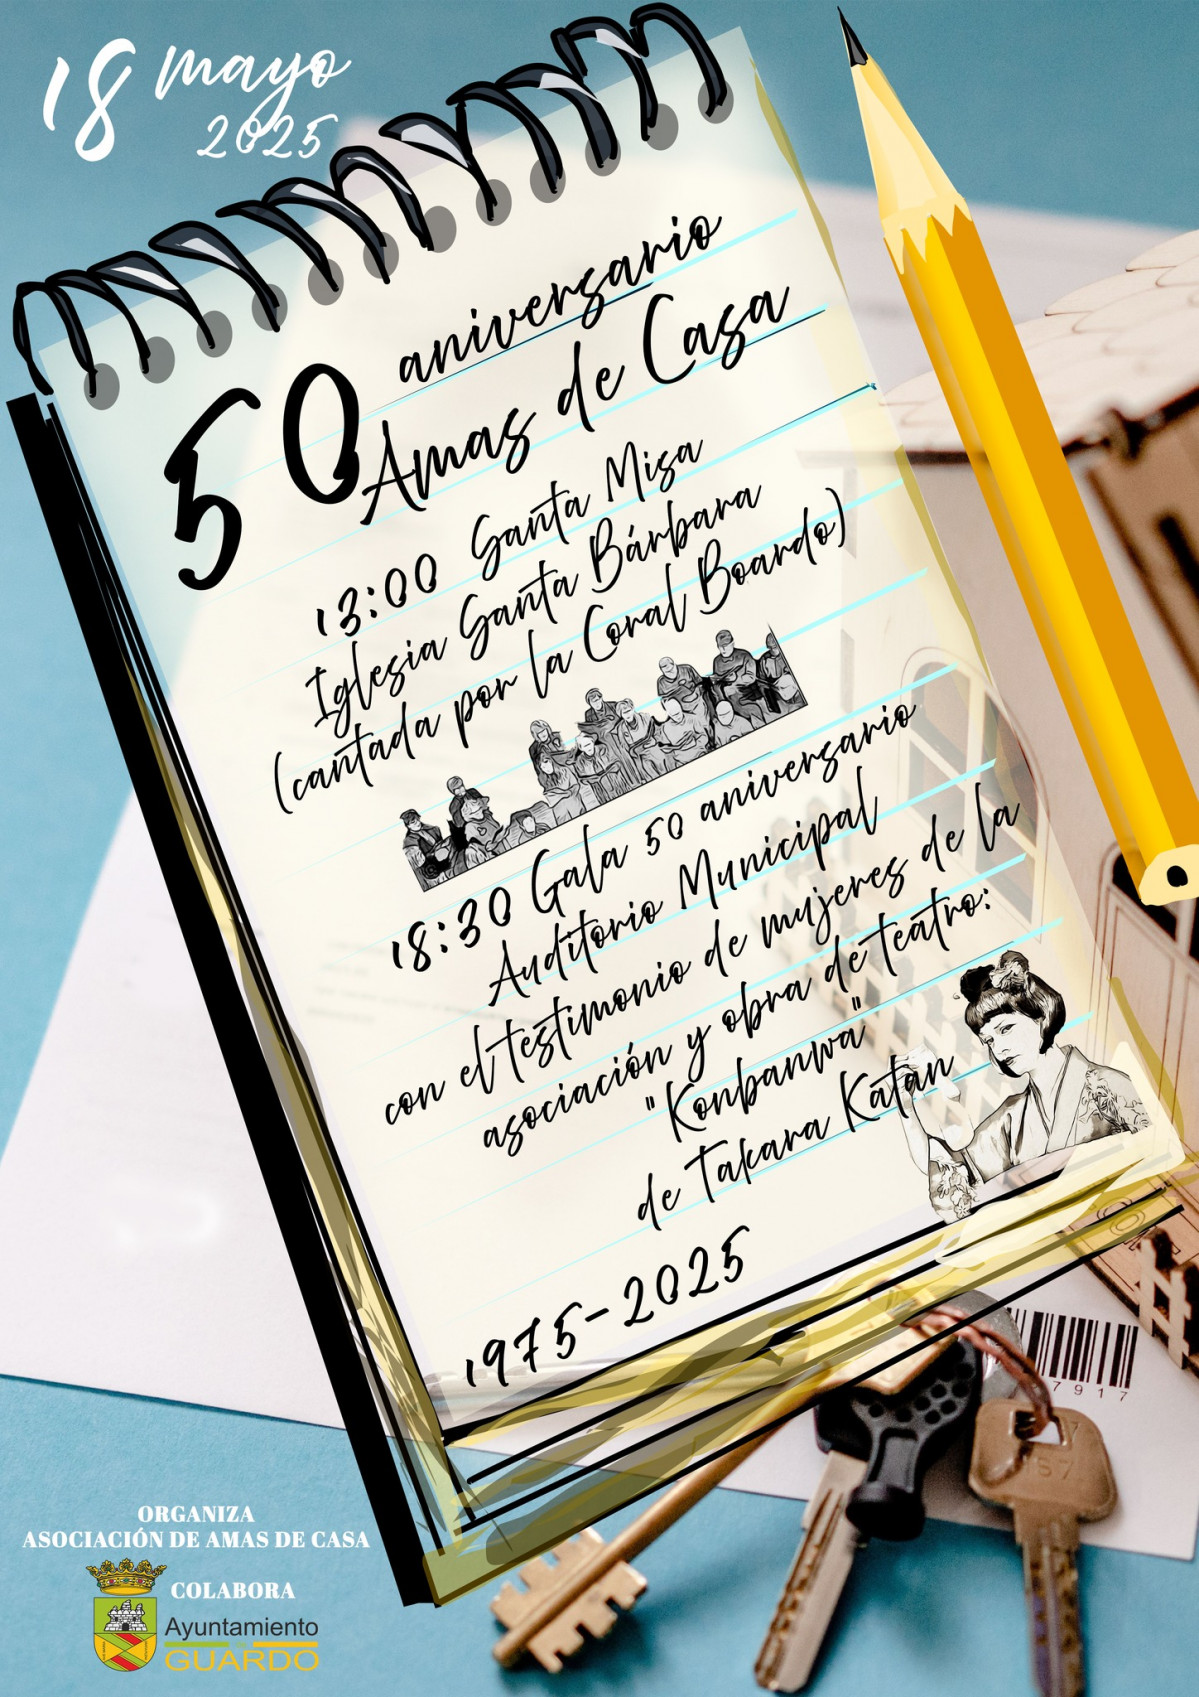 18 mayo
2025
50 aniversario
Amas de Casa
13:00 Santa Misa
Iglesia Santa Bárbara
(cantada por la Coral Boardo)
18:30 Gala 50 aniversario
Auditorio Municipal
con el testimonio de mujeres de la
asociación y obra de teatro:
"Konbanwa"
de Takara Katan
1975-2025
7917
157
ORGANIZA
ASOCIACIÓN DE AMAS DE CASA
COLABORA
Ayuntamiento
DE
GUARDO